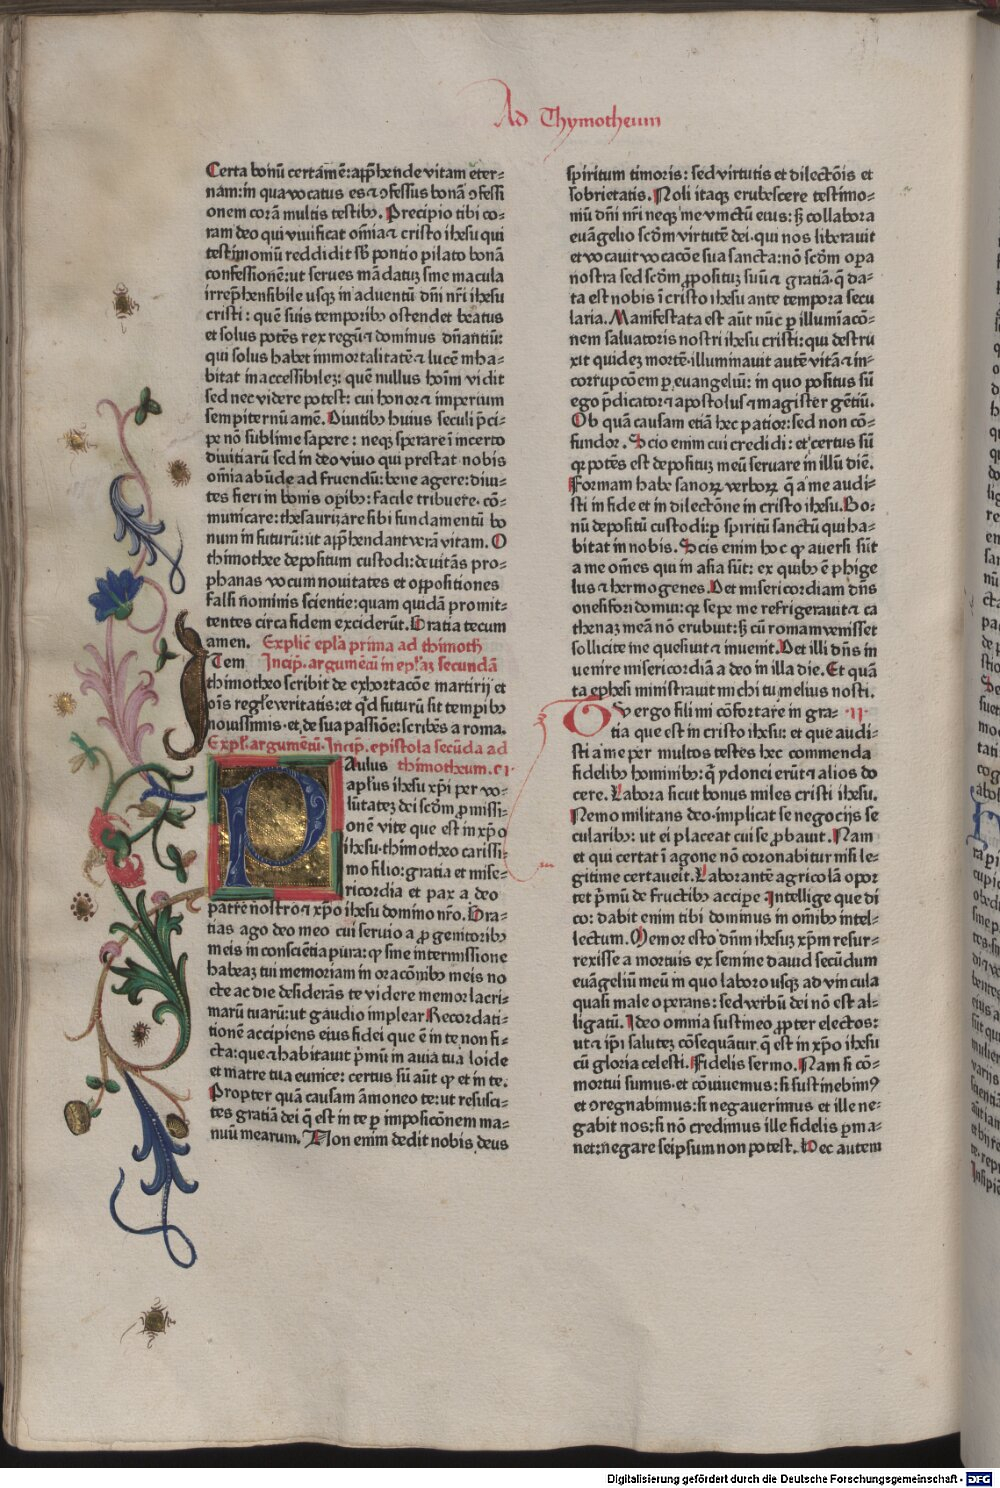 Ad Thymotheum
Certa bonū certamē: apṗhende vitam eter=
nam: in qua vocatus es ⁊ ꝯfessus bonā ꝯfessi
onem corā multis testibꝰ. Precipio tibi co=
ram deo qui viuificat om̄ia ⁊ cristo ihesu qui
testimoniū reddidit sb̄ pontio pilato bonā
confessionē: ut serues mādatuꝫ sine macula
irrep̄hensibile usqꝫ in aduentū dn̄i nr̄i ihesu
cristi: quē suis temporibꝰ ostendet beatus
et solus potēs rex regū ⁊ dominus dn̄antiū:
qui solus habet immortalitatē ⁊ lucē inha=
bitat inaccessibileꝫ: quē nullus hoīm vidit
sed nec videre potest: cui honor ⁊ imperium
sempiternū amē. Diuitibꝰ huius seculi p̄ci=
pe nō sublime sapere: neqꝫ sperare ī incerto
diuitiarū sed in deo viuo qui prestat nobis
om̄ia abūde ad fruendū: bene agere: diui=
tes fieri in bonis opibꝰ: facile tribuere. cō=
municare: thesaurizare sibi fundamentū bo
num in futurū: ut apṗhendant verā vitam. O
thimothee depositum custodi: deuitās pro=
phanas vocum nouitates et oppositiones
falsi nominis scientie: quam quidā promit=
tentes circa fidem exciderūt. Gratia tecum
amen. Explic̄ epl̄a prima ad thimoth̄
Item Incip̄. argumētū in ep̄laꝫ secundā
thimotheo scribit de exhortacōe martirij et
oīs regl̄e veritatis: et qd̄ futurū sit tempibꝰ
nouissimis. et de sua passiōe: scribēs a roma.
Expl̄. argumētū. Incip̄. epistola secūda ad
Aulus thimotheum. c̄ı.
apl̄us ihesu xp̄i per vo=
lūtatez dei scdm̄ pmissi=
onē vite que est in xp̄o
ihesu. thimotheo carissi=
mo filio: gratia et mise=
ricordia et pax a deo
patre nostro ⁊ xp̄o ihesu domino nr̄o. Gra=
tias ago deo meo cui seruio a pgenitoribꝰ
meis in consciētia pura: qꝫ sine intermissione
habeaꝫ tui memoriam in oracōnibꝰ meis no
cte ac die desiderās te videre memor lacri=
marū tuarū: ut gaudio implear Recordati=
tionē accipiens eius fidei que ē in te non fi=
cta: que ⁊ habitauit p̄mū in auia tua loide
et matre tua eunice: certus sū aūt qꝫ et in te.
Propter quā causam āmoneo te: ut resusci=
tes gratiā dei q̄ est in te p imposicōnem ma=
nuū mearum. Non enim dedit nobis deus
spiritum timoris: sed virtutis et dilectōis et
sobrietatis. Noli itaqꝫ erubescere testimo=
niū dn̄i nr̄i neqꝫ me vinctū eius: sꝫ collabora
euāgelio scdm̄ virtutē dei. qui nos liberauit
et vocauit vocacōe sua sancta: nō scdm̄ opa
nostra sed scdm̄ ppositūꝫ suū ⁊ gratiā. q̄ da=
ta est nobis ī cristo ihesu ante tempora secu
laria. Manifestata est aūt nūc p illumīacō=
nem saluatoris nostri ihesu cristi: qui destru
xit quidez mortē. illuminauit autē vitā ⁊ in=
corrupcōem p euangeliū: in quo positus sū
ego p̄dicator ⁊ apostolus ⁊ magister gētiū.
Ob quā causam etiā hec patior: sed non cō=
fundor. Scio enim cui credidi: et certus sū
qꝛ potēs est depositūꝫ meū seruare in illū diē.
Formam habe sanoꝝ verboꝝ q̄ a me audi=
sti in fide et in dilectōne in cristo ihesu. Bo=
nū depositū custodi: p spiritū sanctū qui ha=
bitat in nobis. Scis enim hoc qꝫ auersi sūt
a me om̄es qui in asia sūt: ex quibꝰ ē phige
lus ⁊ hermogenes. Det misericordiam dn̄s
onesifori domui: qꝫ sepe me refrigerauit ⁊ ca
thenaꝫ meā nō erubuit: sꝫ cū romam venisset
sollicite me quesiuit ⁊ inuenit. Det illi dn̄s in
uenire misericordiā a deo in illa die. Et quā
ta ephesi ministrauit michi tu melius nosti.
Tv ergo fili mi cōfortare in gra= ·ıı·
tia que est in cristo ihesu: et que audi=
sti a me per multos testes hec commenda
fidelibꝰ hominibꝰ: q̄ ydonei erūt ⁊ alios do
cere. Labora sicut bonus miles cristi ihesu.
Nemo militans deo. implicat se negocijs se
cularibꝰ: ut ei placeat cui se pbauit. Nam
et qui certat ī agone nō coronabitur nisi le=
gitime certauerit. Laborantē agricolā opor
tet p̄mū de fructibꝰ accipe. Intellige que di
co: dabit enim tibi dominus in om̄ibꝰ intel=
lectum. Memor esto dn̄m ihesuꝫ xp̄m resur=
rexisse a mortuis ex semine dauid secūdum
euāgeliū meū in quo laboro usqꝫ ad vincula
quasi male operans: sed verbū dei nō est al=
ligatū. Ideo omnia sustineo ppter electos:
ut ⁊ ip̄i salutez cōsequātur. q̄ est in xp̄o ihesu
cū gloria celesti. Fidelis sermo. Nam si cō=
mortui sumus. et cōuiuemus: si sustinebimꝰ
et ꝯregnabimus: si negauerimus et ille ne=
gabit nos: si nō credimus ille fidelis pma=
net: negare seipsum non potest. Hec autem
Digitalisierung gefördert durch die Deutsche Forschungsgemeinschaft - DFG